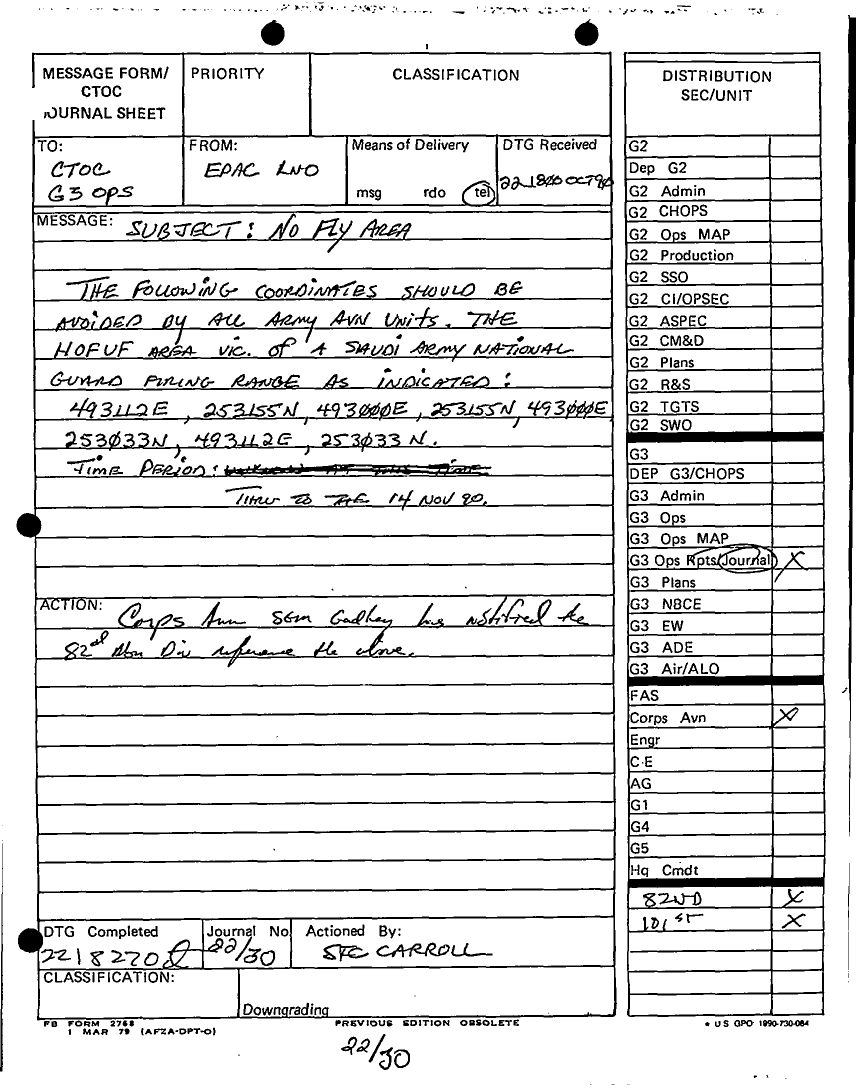 MESSAGE FORM/
CTOC
JOURNAL SHEET
PRIORITY
CLASSIFICATION
TO:
CTOC
G3 OPS
FROM:
EPAC LNO
Means of Delivery
msg rdo tel
DTG Received
221800 OCT 90
MESSAGE: SUBJECT: NO FLY AREA
THE FOLLOWING COORDINATES SHOULD BE
AVOIDED BY ALL ARMY AVN UNITS. THE
HOFUF AREA VIC. OF A SAUDI ARMY NATIONAL
GUARD FIRING RANGE AS INDICATED:
493112E, 253155N, 493000E, 253155N, 493000E
253033N, 493112E, 253033N.
TIME PERIOD:
THRU TO THE 14 NOV 90.
ACTION: Corps Avn SGM has notified the
82nd Abn Div reference the above.
DTG Completed
221827
Journal No
22/30
Actioned By:
SFC CARROLL
CLASSIFICATION:
Downgrading
FB FORM 2768
1 MAR 79 (AFZA-DPT-O)
PREVIOUS EDITION OBSOLETE
22/30
DISTRIBUTION
SEC/UNIT
G2
Dep G2
G2 Admin
G2 CHOPS
G2 Ops MAP
G2 Production
G2 SSO
G2 CI/OPSEC
G2 ASPEC
G2 CM&D
G2 Plans
G2 R&S
G2 TGTS
G2 SWO
G3
DEP G3/CHOPS
G3 Admin
G3 Ops
G3 Ops MAP
G3 Ops Rpts/Journal X
G3 Plans
G3 NBCE
G3 EW
G3 ADE
G3 Air/ALO
FAS
Corps Avn X
Engr
C-E
AG
G1
G4
G5
Hq Cmdt
82ND X
101ST X
* U S GPO 1990-730-084